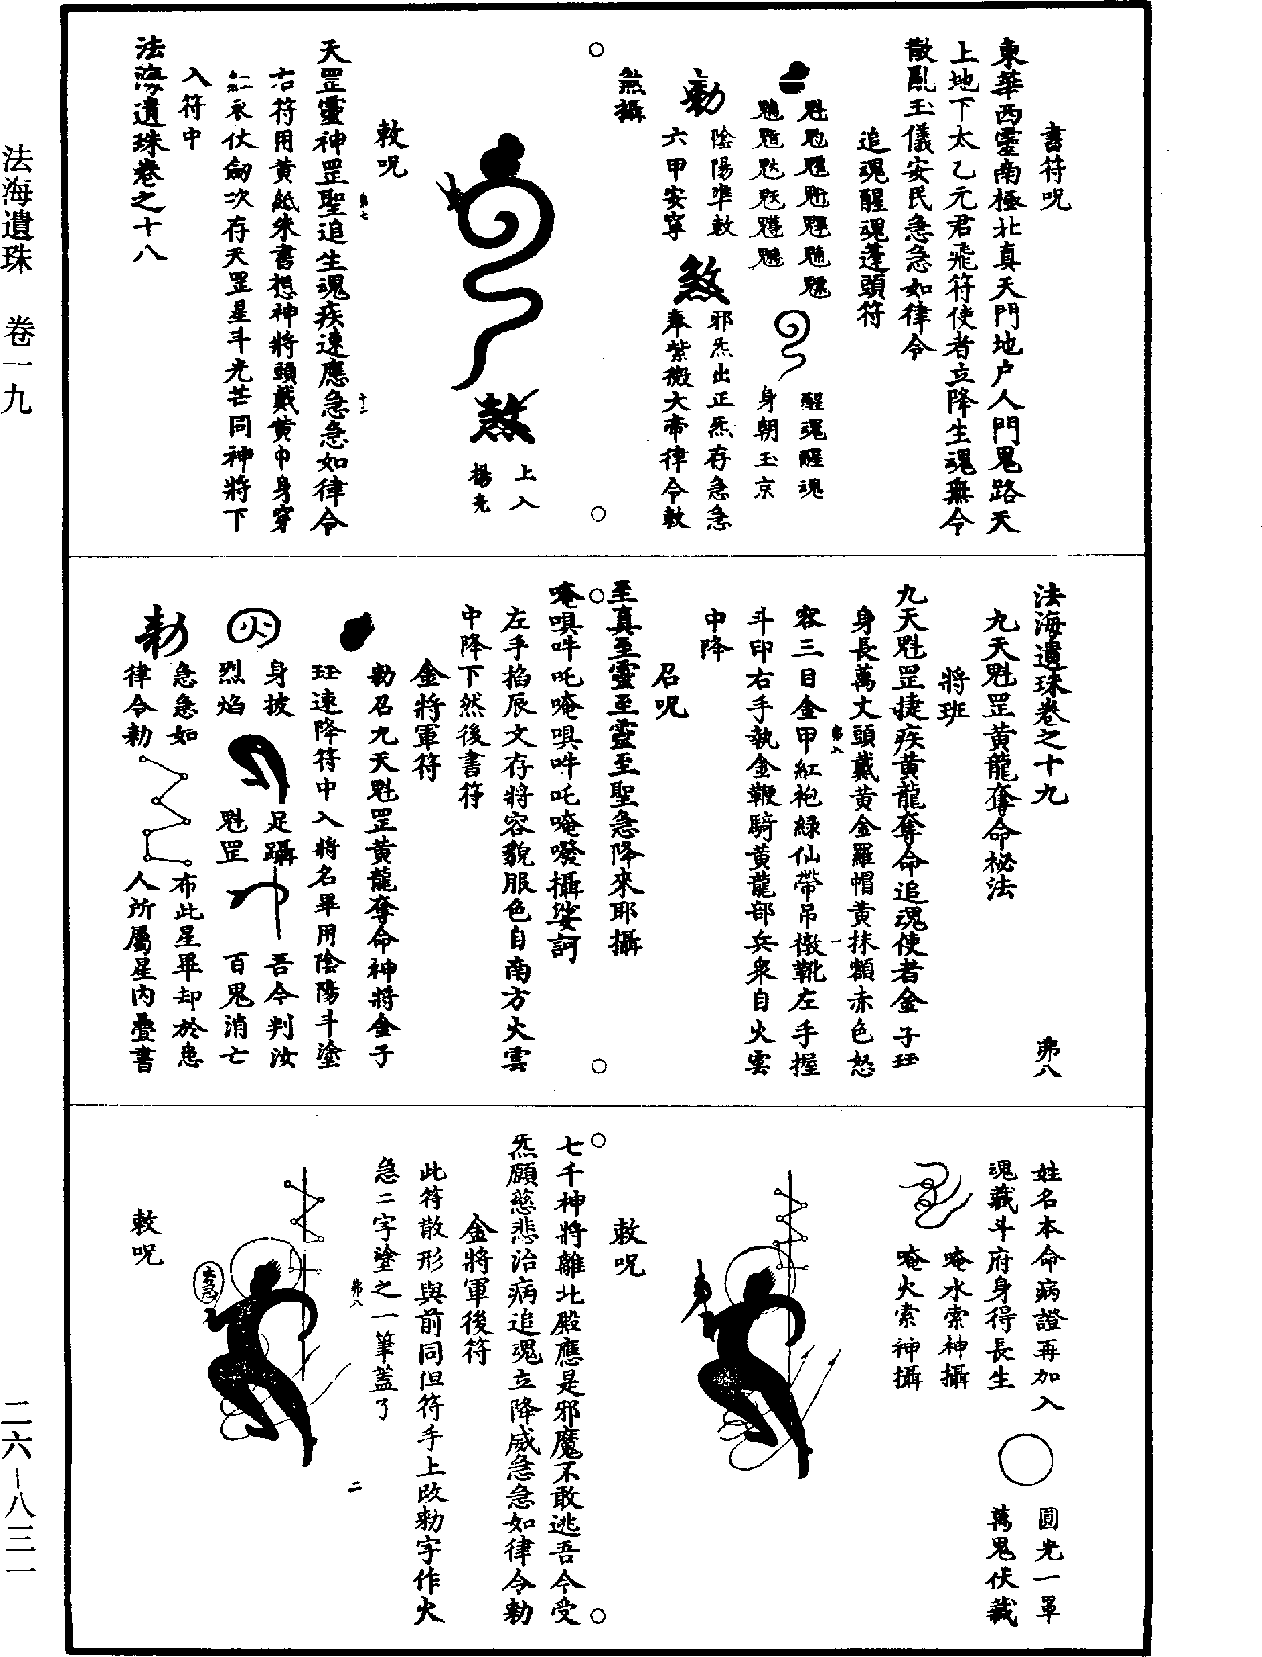 書符呪
東華西靈南極北真天門地户人門鬼路天
上地下太乙元君飛符使者立降生魂無令
散亂玉儀安民急急如律令
追魂醒魂蓬頭符
醒魂醒魂
身朝玉京
勑
陰陽準敕
六甲安寧
煞
邪炁出正炁存急急
奉紫微大帝律令敕
煞攝
煞
上入
揚光
敕呪
天罡靈神罡聖追生魂疾速應急急如律令
右符用黄紙朱書想神將頭戴黄巾身穿
紅衣仗劒次存天罡星斗光芒同神將下
入符中
法海遺珠卷之十八
法海遺珠卷之十九
弗八
九天魁罡黄龍奪命祕法
將班
九天魁罡捷疾黄龍奪命追魂使者金子珏
身長萬丈頭戴黄金羅帽黄抹額赤色怒
容三目金甲紅袍緑仙帶吊墩靴左手握
斗印右手執金鞭騎黄龍部兵衆自火雲
中降
召呪
至真至靈至靈至聖急降來耶攝
唵唄吽吒唵唄吽吒唵㗶攝娑訶
左手掐辰文存將容貌服色自南方火雲
中降下然後書符
金將軍符
勑召九天魁罡黄龍奪命神將金子
珏速降符中入將名畢用陰陽斗塗
火
身披
烈焰
足躡
魁罡
吾令判汝
百鬼消亡
勑
急急如
律令勑
布此星畢却於患
人所屬星内疊書
姓名本命病證再加入
魂藏斗府身得長生
圓光一罩
萬鬼伏藏
唵水索神攝
唵火索神攝
敕呪
七千神將離北殿應是邪魔不敢逃吾今受
炁願慈悲治病追魂立降威急急如律令勑
金將軍後符
此符散形與前同但符手上改勑字作火
急二字塗之一筆蓋了
弗八
二
火急
敕呪
法海遺珠 卷一九
二六－八三一